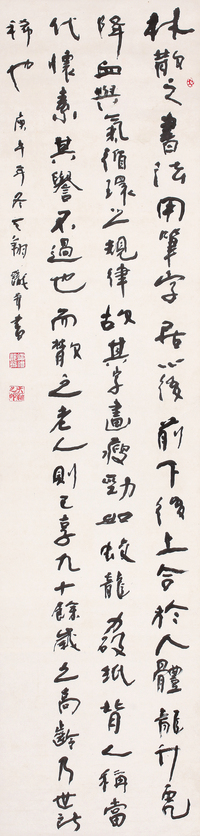 林散之書法用筆字居心後前下後上合於人體龍行虎
降血與氣循環之規律故其字畫瘦勁如蛟龍力破紙背人稱當
代懷素其譽不過也而散之老人則已享九十餘歲之高齡乃世所
稀也
庚午年冬